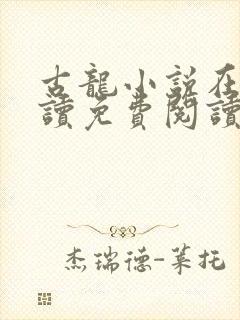 古龍小說在
讀免費閱讀
杰瑞德-莱托